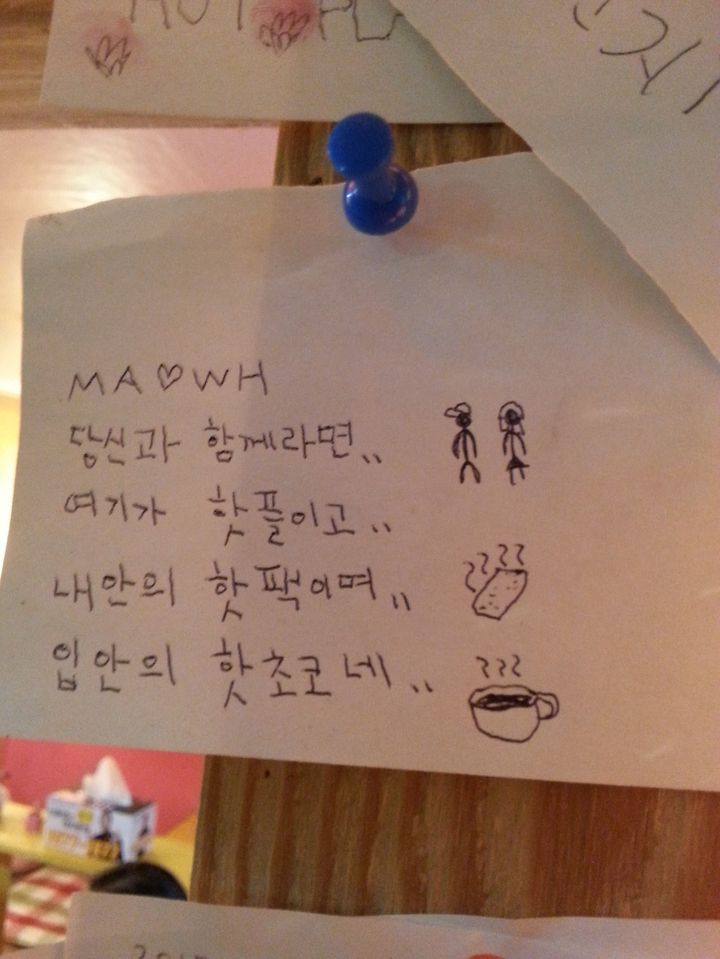 HOT PL
MA♡WH
당신과 함께라면..
여기가 핫플이고..
내안의 핫팩이며..
입안의 핫초코네..